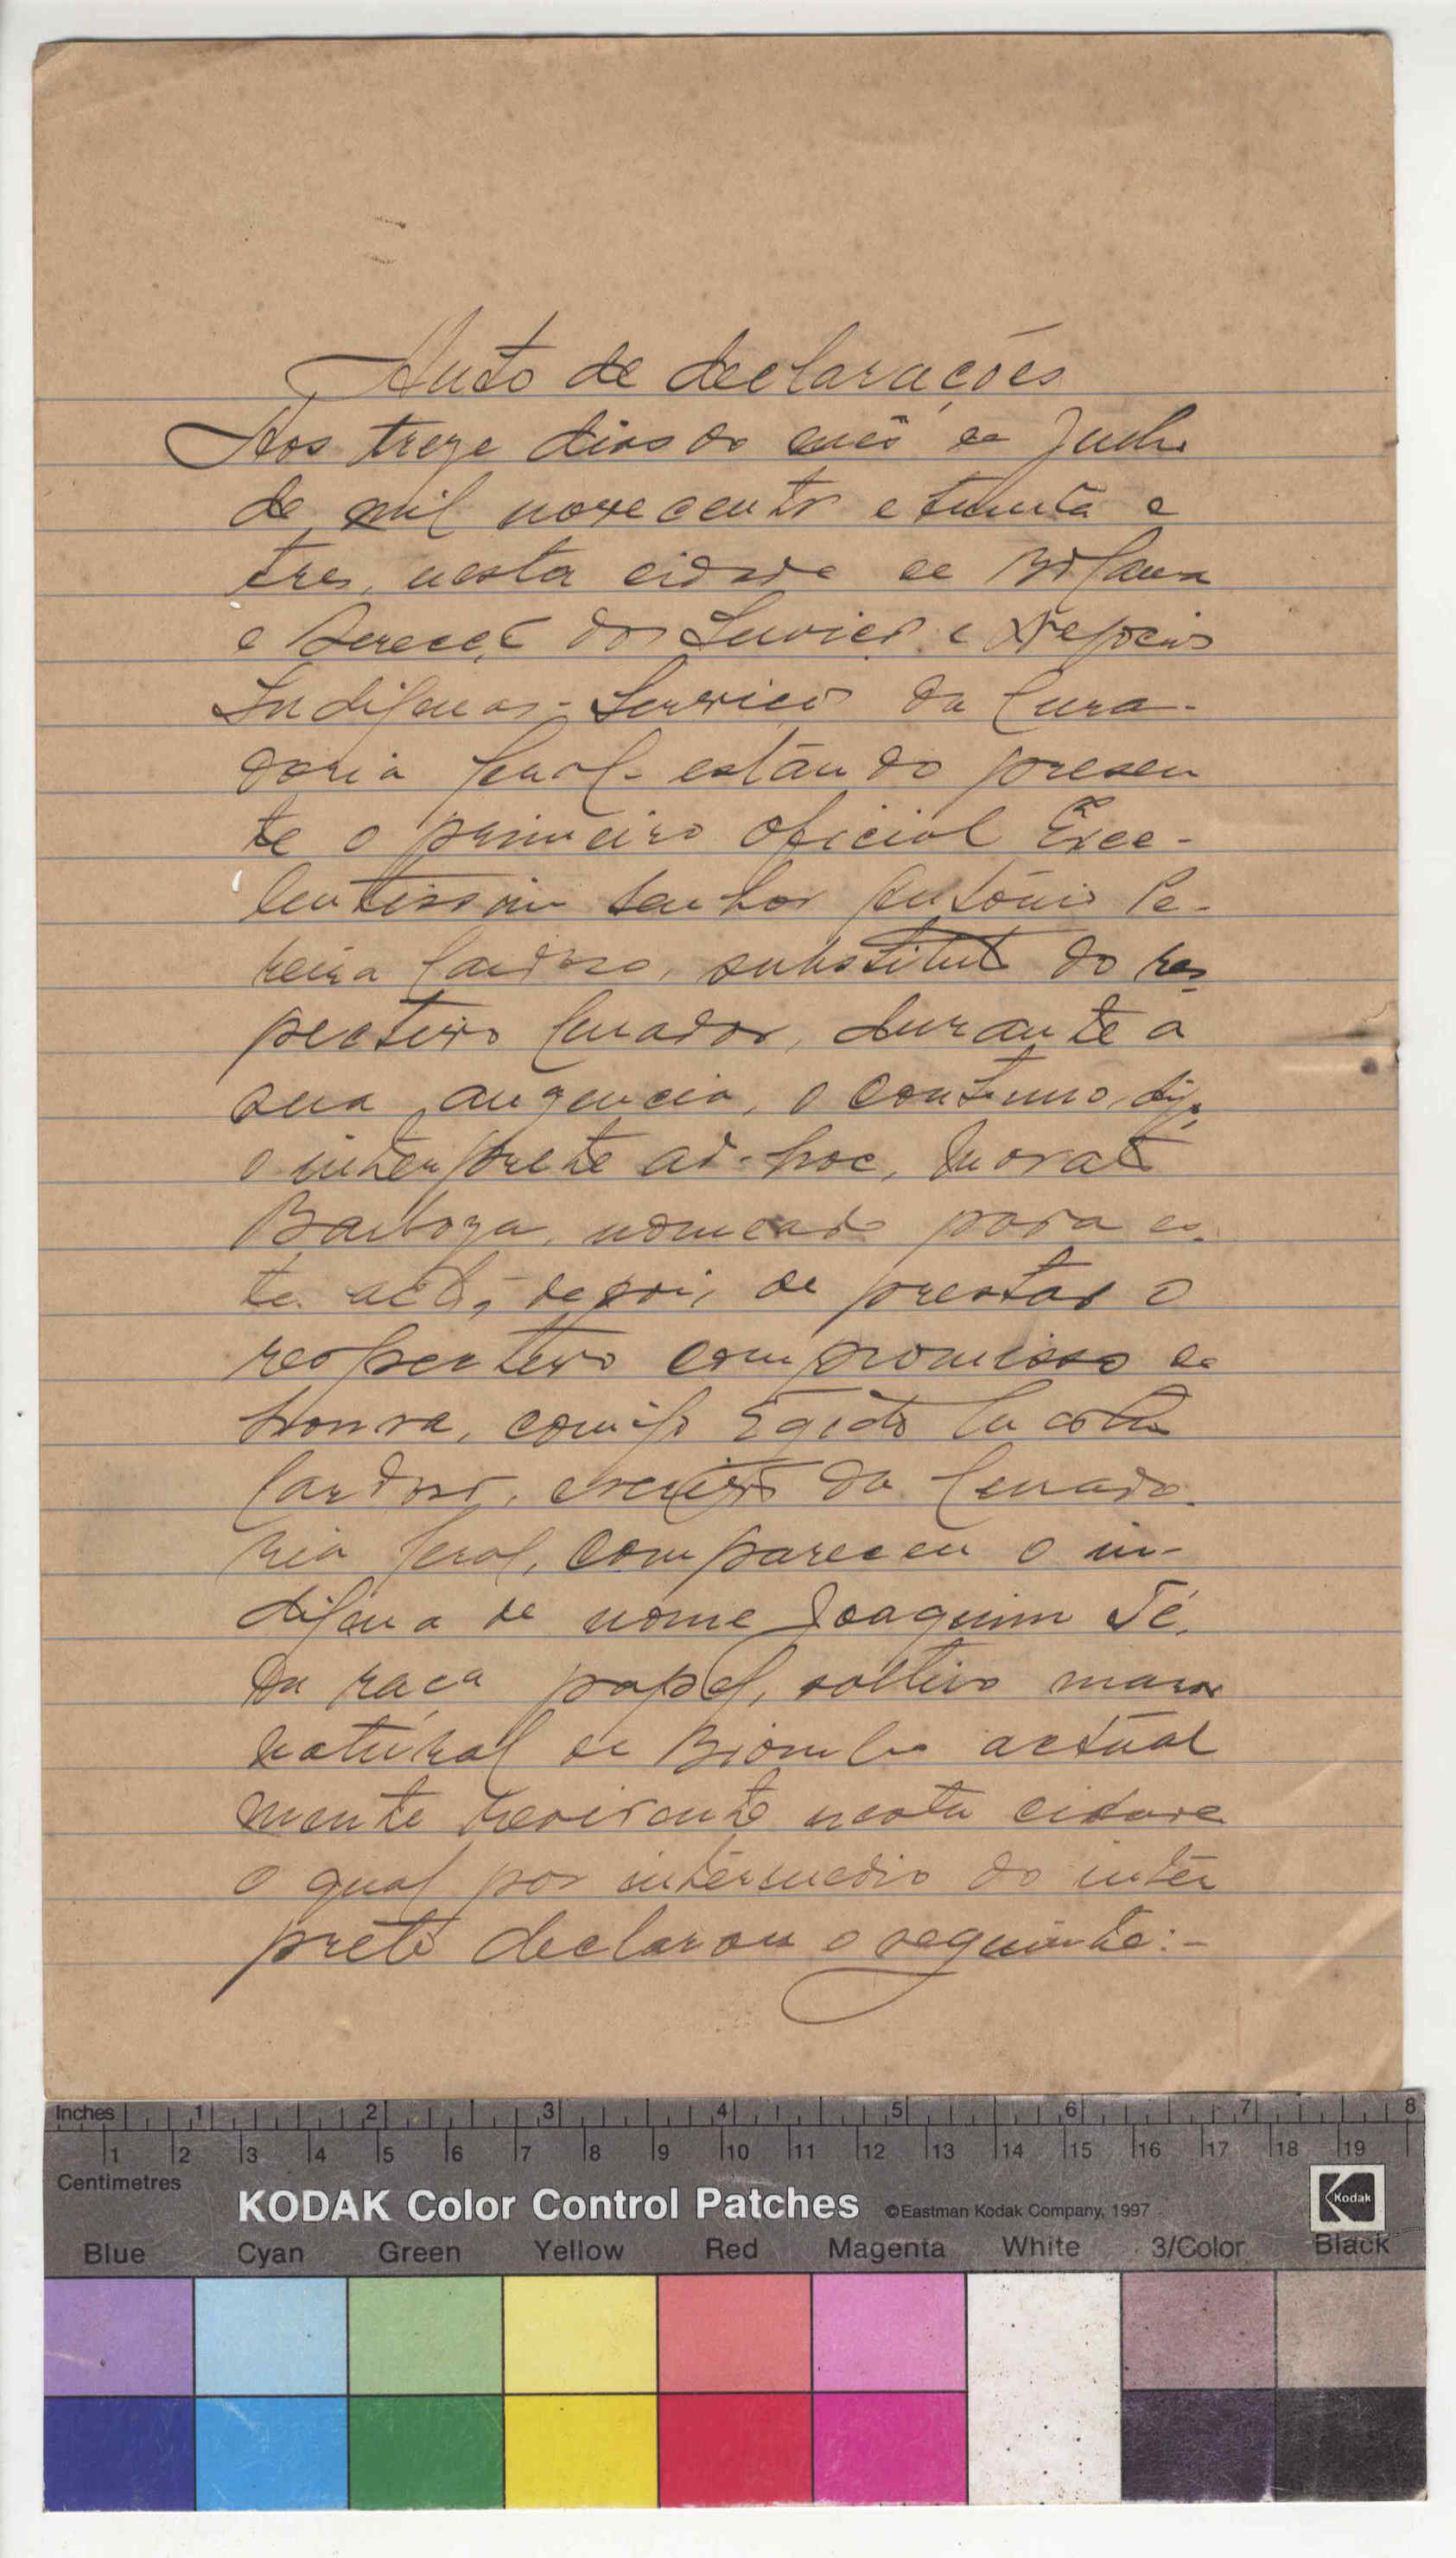 Auto de declarações
Aos treze dias do mês de Julho
de mil novecentos e trinta e
tres, nesta cidade de Bolama
e Direcção dos Serviços e Negocios
Indigenas - Serviços da Cura-
doria Geral - estando presen
te o primeiro oficial Exce-
lentissimo Senhor António Pe-
reira Cardoso, substituto do res
pectivo Curador, durante a
sua auzencia, o contino, digo,
o interprete ad-hoc, Morat
Barboza, nomeado para es-
te acto, depois de prestar o
respectivo compromisso de
honra, comigo Egidio
Cardoso, da Curado-
ria Geral, compareceu o in-
digena de nome Joaquim Té,
da raça papel, solteiro maior
natural de Biombo actual
mente residente nesta cidade
o qual por intermedio do inter
prete declarou o seguinte:-
Inches 1 2 3 4 5 6 7 8
1 2 3 4 5 6 7 8 9 10 11 12 13 14 15 16 17 18 19
Centimetres
KODAK Color Control Patches ©Eastman Kodak Company, 1997 Kodak
Blue Cyan Green Yellow Red Magenta White 3/Color Black